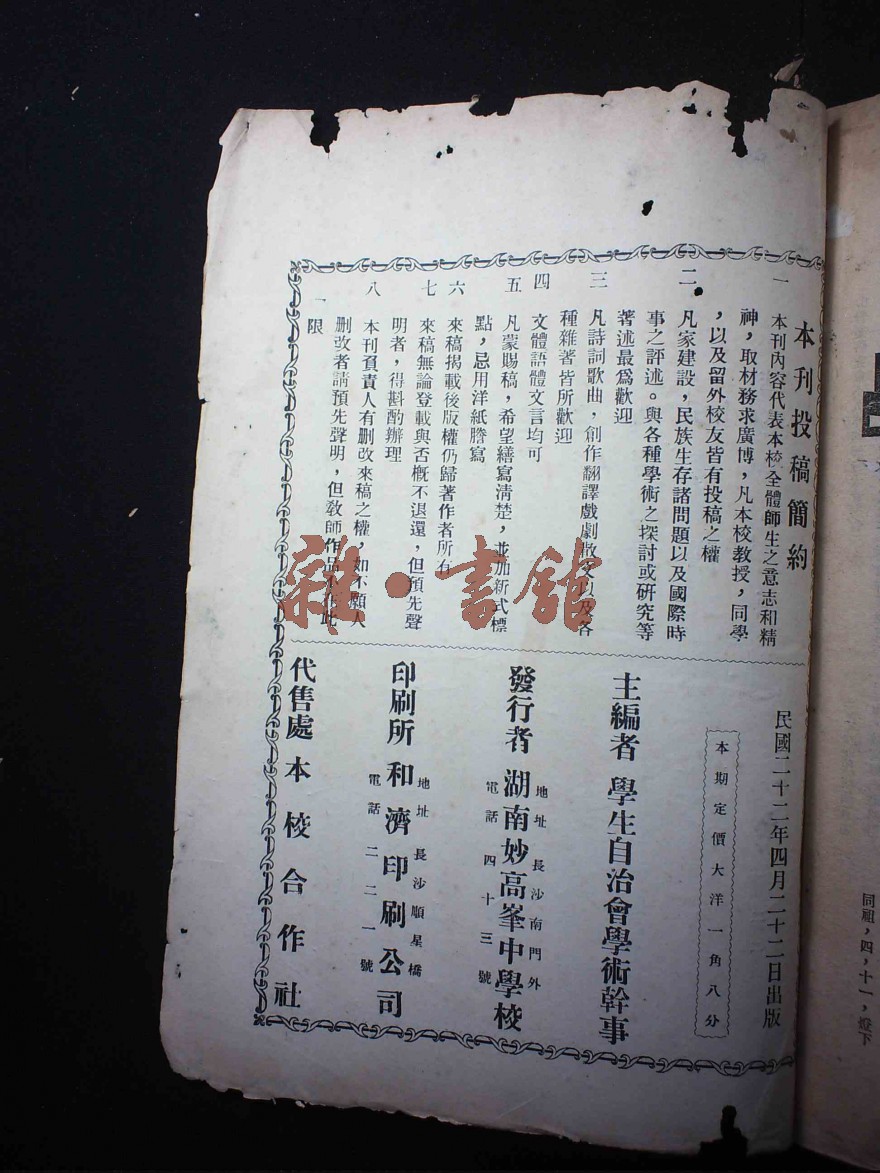 本刊投稿簡約
一 本刊內容代表本校全體師生之意志和精
神，取材務求廣博，凡本校教授，同學
，以及留外校友皆有投稿之權
二 凡家建設，民族生存諸問題以及國際時
事之評述。與各種學術之探討或研究等
著述最爲歡迎
三 凡詩詞歌曲，創作翻譯戲劇散文以及各
種雜著皆所歡迎
四 文體語體文言均可
五 凡蒙賜稿，希望繕寫淸楚，並加新式標
點，忌用洋紙謄寫
六 來稿揭載後版權仍歸著作者所有
七 來稿無論登載與否概不退還，但預先聲
明者，得斟酌辦理
八 本刊負責人有删改來稿之權，如不願人
删改者請預先聲明，但敎師作品不在此
限
民國二十二年四月二十二日出版
本期定價大洋一角八分
主編者 學生自治會學術幹事
發行者 湖南妙高峯中學校
地址 長沙南門外
電話 四十三號
印刷所 和濟印刷公司
地址 長沙順星橋
電話 二二一號
代售處 本校合作社
雜·書館
同祖，四，十一，燈下